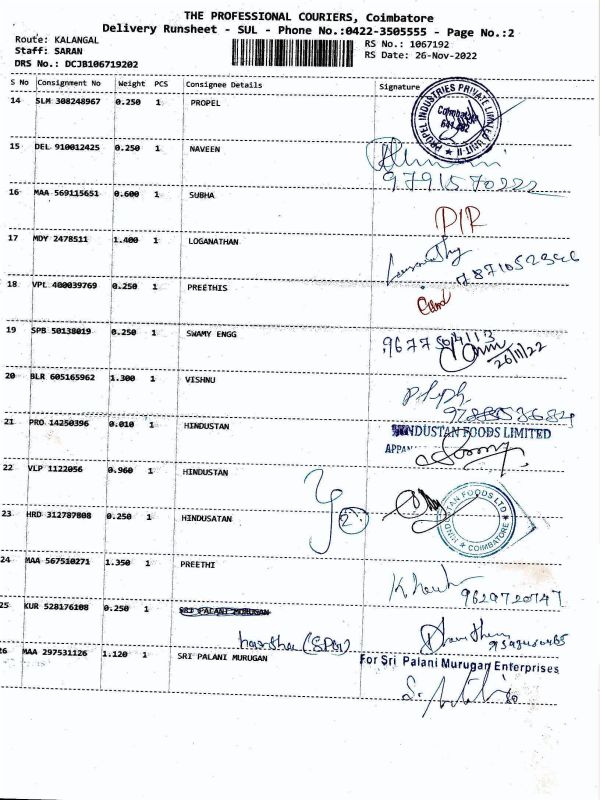 THE PROFESSIONAL COURIERS, Coimbatore
Delivery Runsheet - SUL - Phone No.:0422-3505555 - Page No.:2
Route: KALANGAL
Staff: SARAN
DRS No.: DCJB106719202
RS No.: 1067192
RS Date: 26-Nov-2022
S No Consignment No Weight PCS Consignee Details Signature
14 SLM 308248967 0.250 1 PROPEL
PROPEL INDUSTRIES PRIVATE LIMITED UNIT-II
Coimbatore
15 DEL 910012425 0.250 1 NAVEEN
9791570222
16 MAA 569115651 0.600 1 SUBHA
DIR
17 MDY 2478511 1.400 1 LOGANATHAN
18 VPL 400039769 0.250 1 PREETHIS
19 SPB 50138019 0.250 1 SWAMY ENGG
26/11/22
20 BLR 605165962 1.300 1 VISHNU
21 PRO 14250396 0.010 1 HINDUSTAN
HINDUSTAN FOODS LIMITED
22 VLP 1122056 0.960 1 HINDUSTAN
2
23 HRD 312787808 0.250 1 HINDUSATAN
HINDUSTAN FOODS LTD
COIMBATORE
24 MAA 567510271 1.350 1 PREETHI
9629720747
25 KUR 528176108 0.250 1 SRI PALANI MURUGAN
26 MAA 297531126 1.120 1 SRI PALANI MURUGAN
For Sri Palani Murugan Enterprises